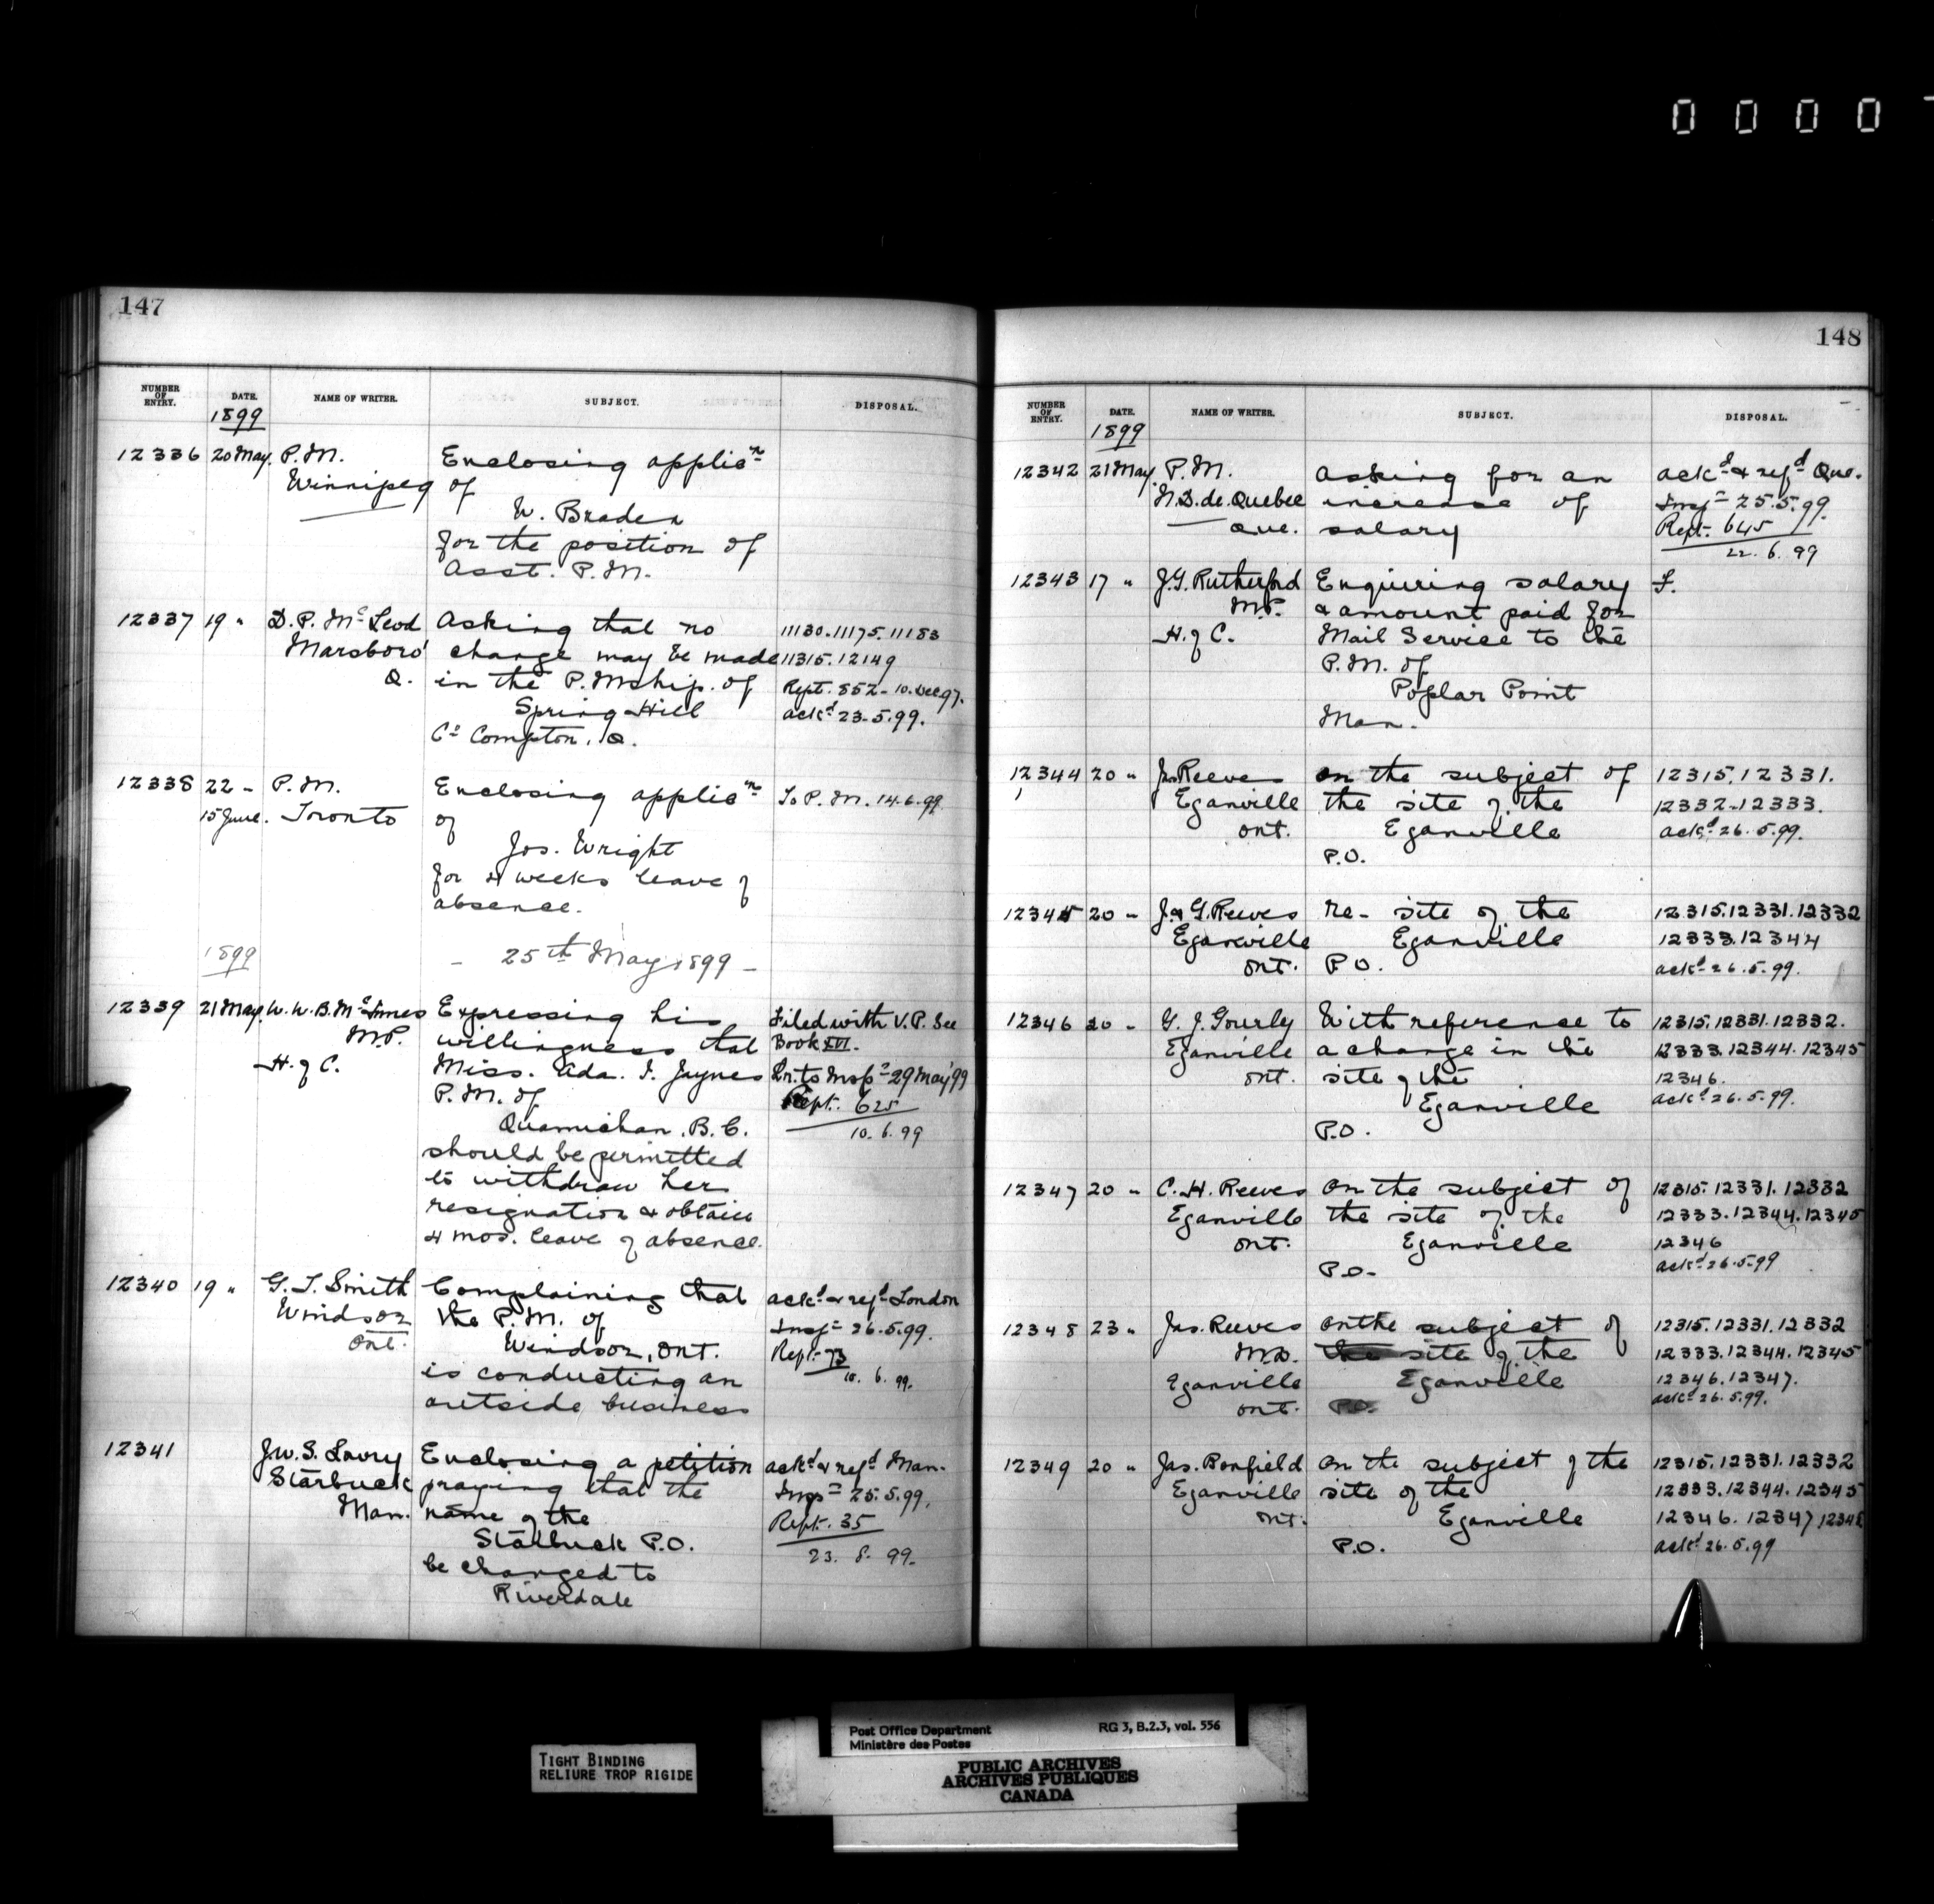 0 0 0 0
147
NUMBER OF ENTRY. DATE. NAME OF WRITER. SUBJECT. DISPOSAL.
1899
12336 20 May. P.M. Enclosing applicn
Winnipeg of
W. Braden
for the position of
Asst. P.M.
12337 19 " D. P. McLeod Asking that no 11130.11175.11183
Marsboro' change may be made 11315.12149
Q. in the P.Mship. of Rept. 852 - 10. Dec 97.
Spring Hill ackd 23.5.99.
Co Compton. Q.
12338 22 - P.M. Enclosing applicn To P.M. 14.6.99.
15 June. Toronto of
Jos. Wright
for 4 weeks leave of
absence.
1899 - 25th May 1899 -
12339 21 May. W.W.B. McInnes Expressing his Filed with V.P. See
M.P. willingness that Book XVI.
H. of C. Miss. Ada. I. Jaynes Lr. to Inspr 29 May '99
P.M. of Rept. 625
Quamichan. B.C. 10. 6. 99
should be permitted
to withdraw her
resignation & obtain
4 mos. leave of absence.
12340 19 " G. T. Smith Complaining that ackd & refd London
Windsor the P.M. of Inspr 26.5.99.
Ont. Windsor, Ont. Rept. 73
is conducting an 10. 6. 99.
outside business
12341 J.W.S. Lowry Enclosing a petition ackd & refd Man.
Starbuck praying that the Inspr 25.5.99.
Man. name of the Rept. 35
Starbuck P.O. 23. 8. 99.
be changed to
Riverdale
148
NUMBER OF ENTRY. DATE. NAME OF WRITER. SUBJECT. DISPOSAL.
1899
12342 21 May. P.M. asking for an ackd & refd Que.
N.D. de. Quebec increase of Inspr 25.5.99.
Que. salary Rept. 645
22. 6. 99
12343 17 " J.G. Rutherford Enquiring salary F.
M.P. & amount paid for
H. of C. Mail Service to the
P.M. of
Poplar Point
Man.
12344 20 " Jas Reeves on the subject of 12315.12331.
Eganville the site of the 12332.12333.
Ont. Eganville ackd 26.5.99.
P.O.
12345 20 " J. & G. Reeves re- site of the 12315.12331.12332
Eganville Eganville 12333.12344
Ont. P.O. ackd 26.5.99.
12346 20 " G. J. Gourly With reference to 12315.12331.12332.
Eganville a change in the 12333.12344.12345
Ont. site of the 12346.
Eganville ackd 26.5.99.
P.O.
12347 20 " C. H. Reeves on the subject of 12315.12331.12332
Eganville the site of the 12333.12344.12345
Ont. Eganville 12346
P.O. ackd 26.5.99
12348 23 " Jas. Reeves on the subject of 12315.12331.12332
M.D. the site of the 12333.12344.12345
Eganville Eganville 12346.12347.
Ont. P.O. ackd 26.5.99.
12349 20 " Jas. Bonfield on the subject of the 12315.12331.12332
Eganville site of the 12333.12344.12345
Ont. Eganville 12346.12347 12348
P.O. ackd 26.5.99
TIGHT BINDING
RELIURE TROP RIGIDE
Post Office Department RG 3, B.2.3, vol. 556
Ministère des Postes
PUBLIC ARCHIVES
ARCHIVES PUBLIQUES
CANADA